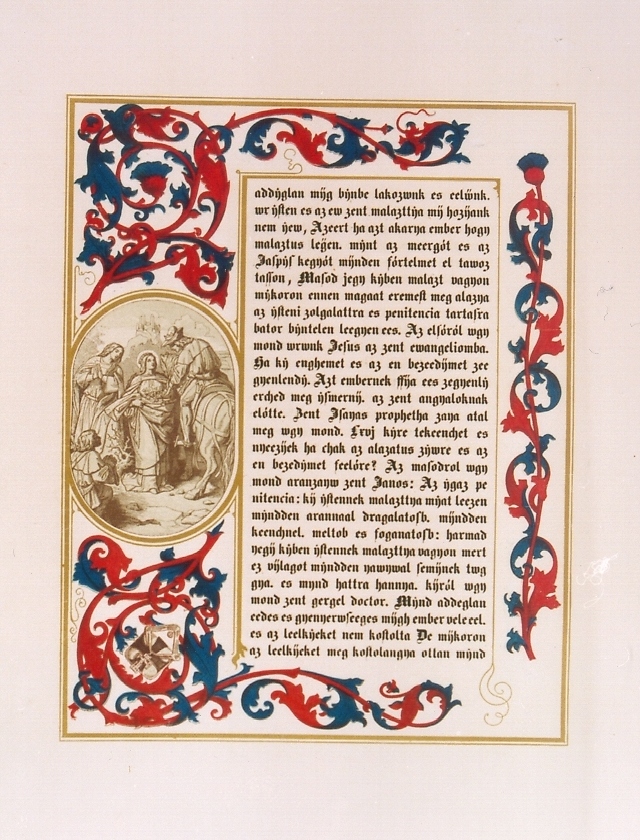 addÿglan mÿg bÿnbe lakozwnk es eelwnk.
wr ÿsten es az ew zent malazttÿa mÿ hozÿank
nem ÿew, Azeert ha azt akarna ember hogy
malaztus legÿen. mÿnt az meergót es az
Jaspÿs kegyót mÿnden förtelmet el tawoz
tasson, Masod jegy kÿben malazt vagyon
mÿkoron ennen magaat eremest meg alazna
az ÿsteni zolgalattra es penitencia tartasra
bator bÿntelen leegyen ees. Az elsóról wgy
mond wrwnk Jesus az zent ewangeliomba.
Ha kÿ enghemet es az en bezeedÿmet zee
gyenlendÿ. Azt embernek ffÿa ees zegyenlÿ
erched meg ÿsmernÿ. az zent angyaloknak
elótte. Zent Jsayas prophetha zaya atal
meg wgy mond. kÿre tekeenchet es
nyeezÿek ha chak az alazatus zÿwre es az
en bezedÿmet feelóre? Az masodrol wgy
mond aranzayw zent Janos: Az ÿgaz pe
nitencia: kÿ ÿstennek malazttya mÿat leezen
mÿndden arannaal dragalatosb. mÿndden
keendnel. meltob es foganatosb: harmad
yegÿ kÿben ÿstennek malazttya wagyon mert
ez wÿlagot mÿndden yawywal semÿnek twg
gya. es mÿnd hattra hannya. kÿról wgy
mond zent gergel doctor. Mÿnd addeglan
eedes es gyennyerwseeges mÿgh ember vele eel.
es az leelkÿeket nem kostolta De mÿkoron
az leelkÿeket meg kostolangya ottan mÿnd